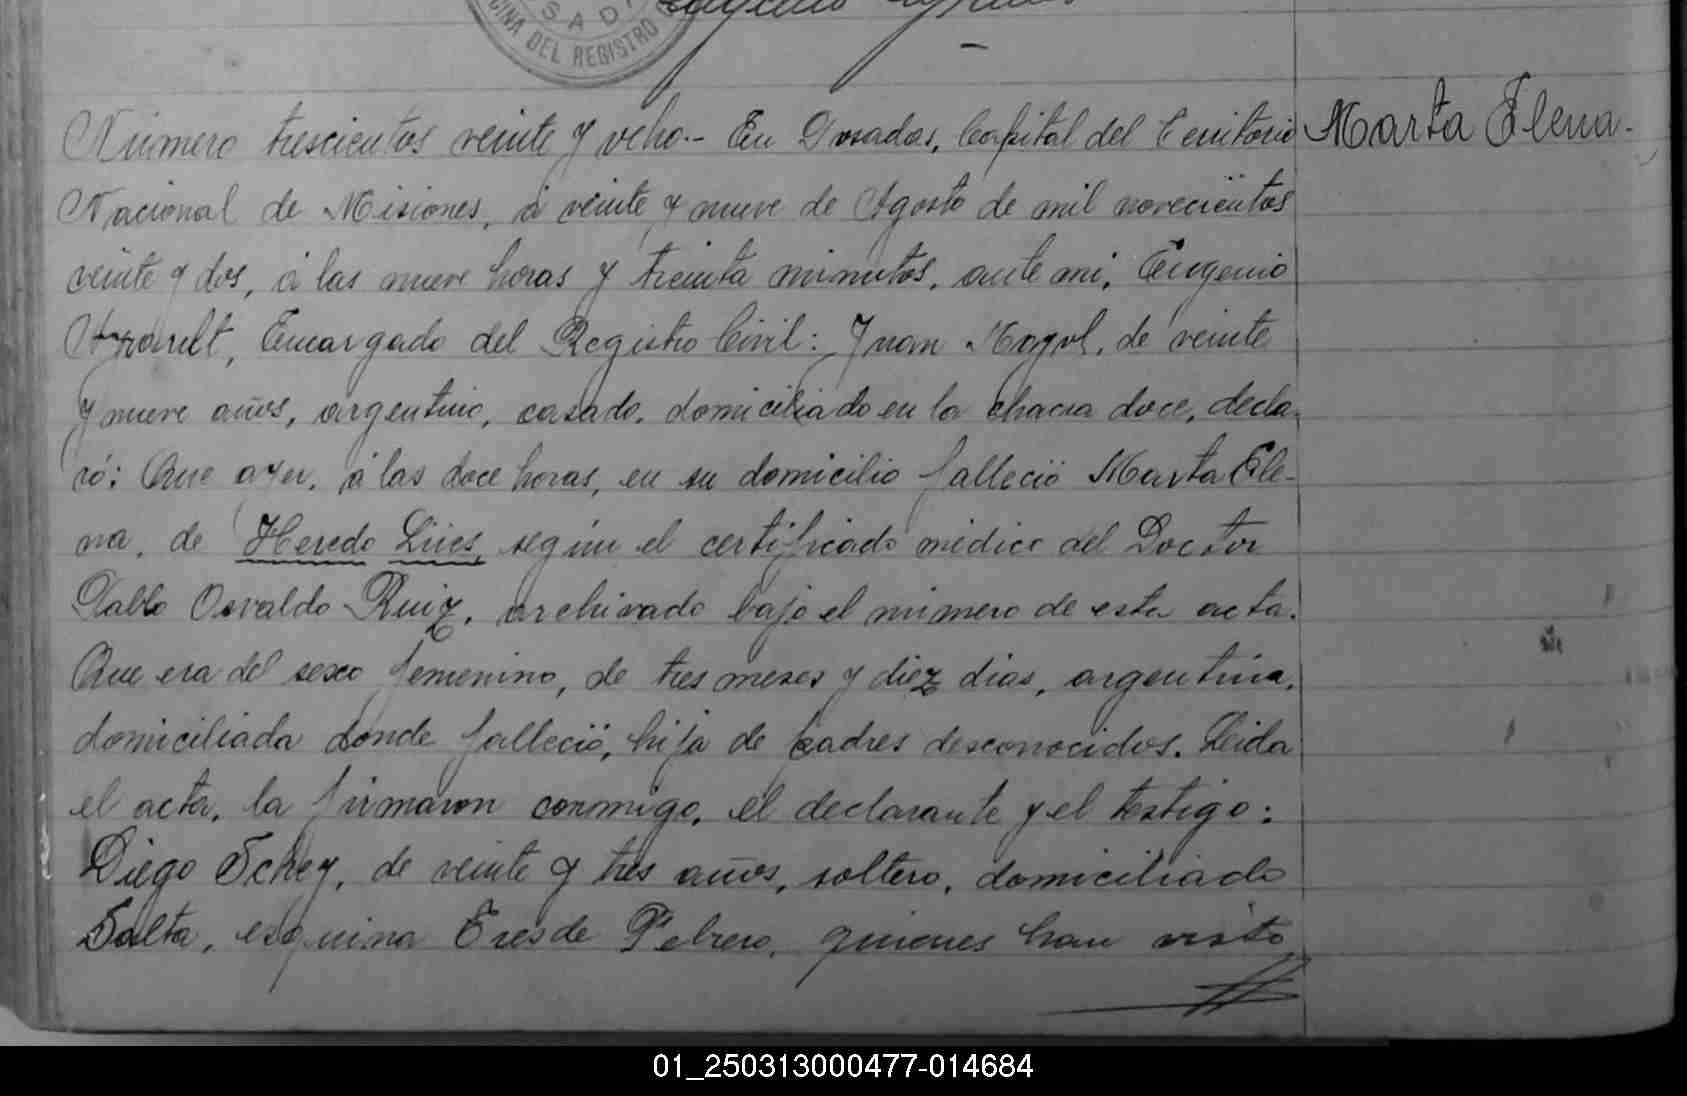 SAD
CINA DEL REGISTRO
Marta Elena.
Número trescientos veinte y ocho.- En Posadas, Capital del Territorio
Nacional de Misiones, á veinte y nueve de Agosto de mil novecientos
veinte y dos, á las nueve horas y treinta minutos, ante mi, Eugenio
Encargado del Registro Civil: Juan de veinte
y nueve años, argentino, casado, domiciliado en la chacra doce, decla-
ró: Que ayer, á las doce horas, en su domicilio falleció Marta Ele-
na, de Heredo Lües, según el certificado médico del Doctor
Pablo Osvaldo Ruiz, archivado bajo el número de esta acta.
Que era del sexo femenino, de tres meses y diez dias, argentina,
domiciliada donde falleció, hija de padres desconocidos. Leida
el acta, la firmaron conmigo, el declarante y el testigo:
Diego de veinte y tres años, soltero, domiciliado
Salta, esquina Tres de Febrero, quienes han visto
01_250313000477-014684